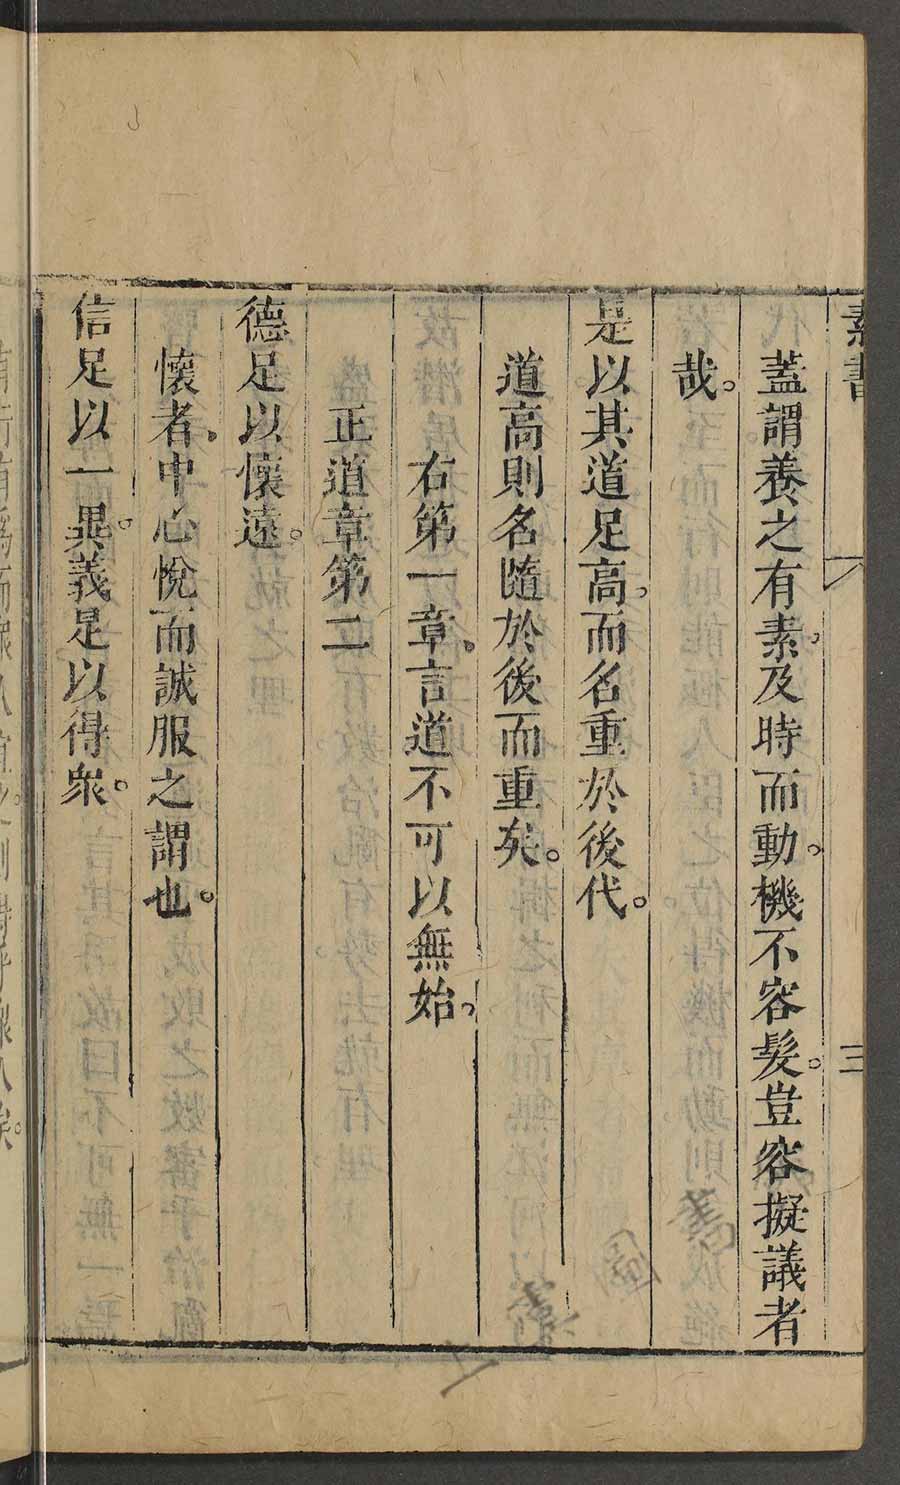 素書
三
蓋謂養之有素。及時而動。機不容髮。豈容擬議者
哉。
是以其道足高。而名重於後代。
道高則名隨於後而重矣。
右第一章。言道不可以無始。
正道章第二
德足以懷遠。
懷者。中心悅而誠服之謂也。
信足以一異。義足以得衆。